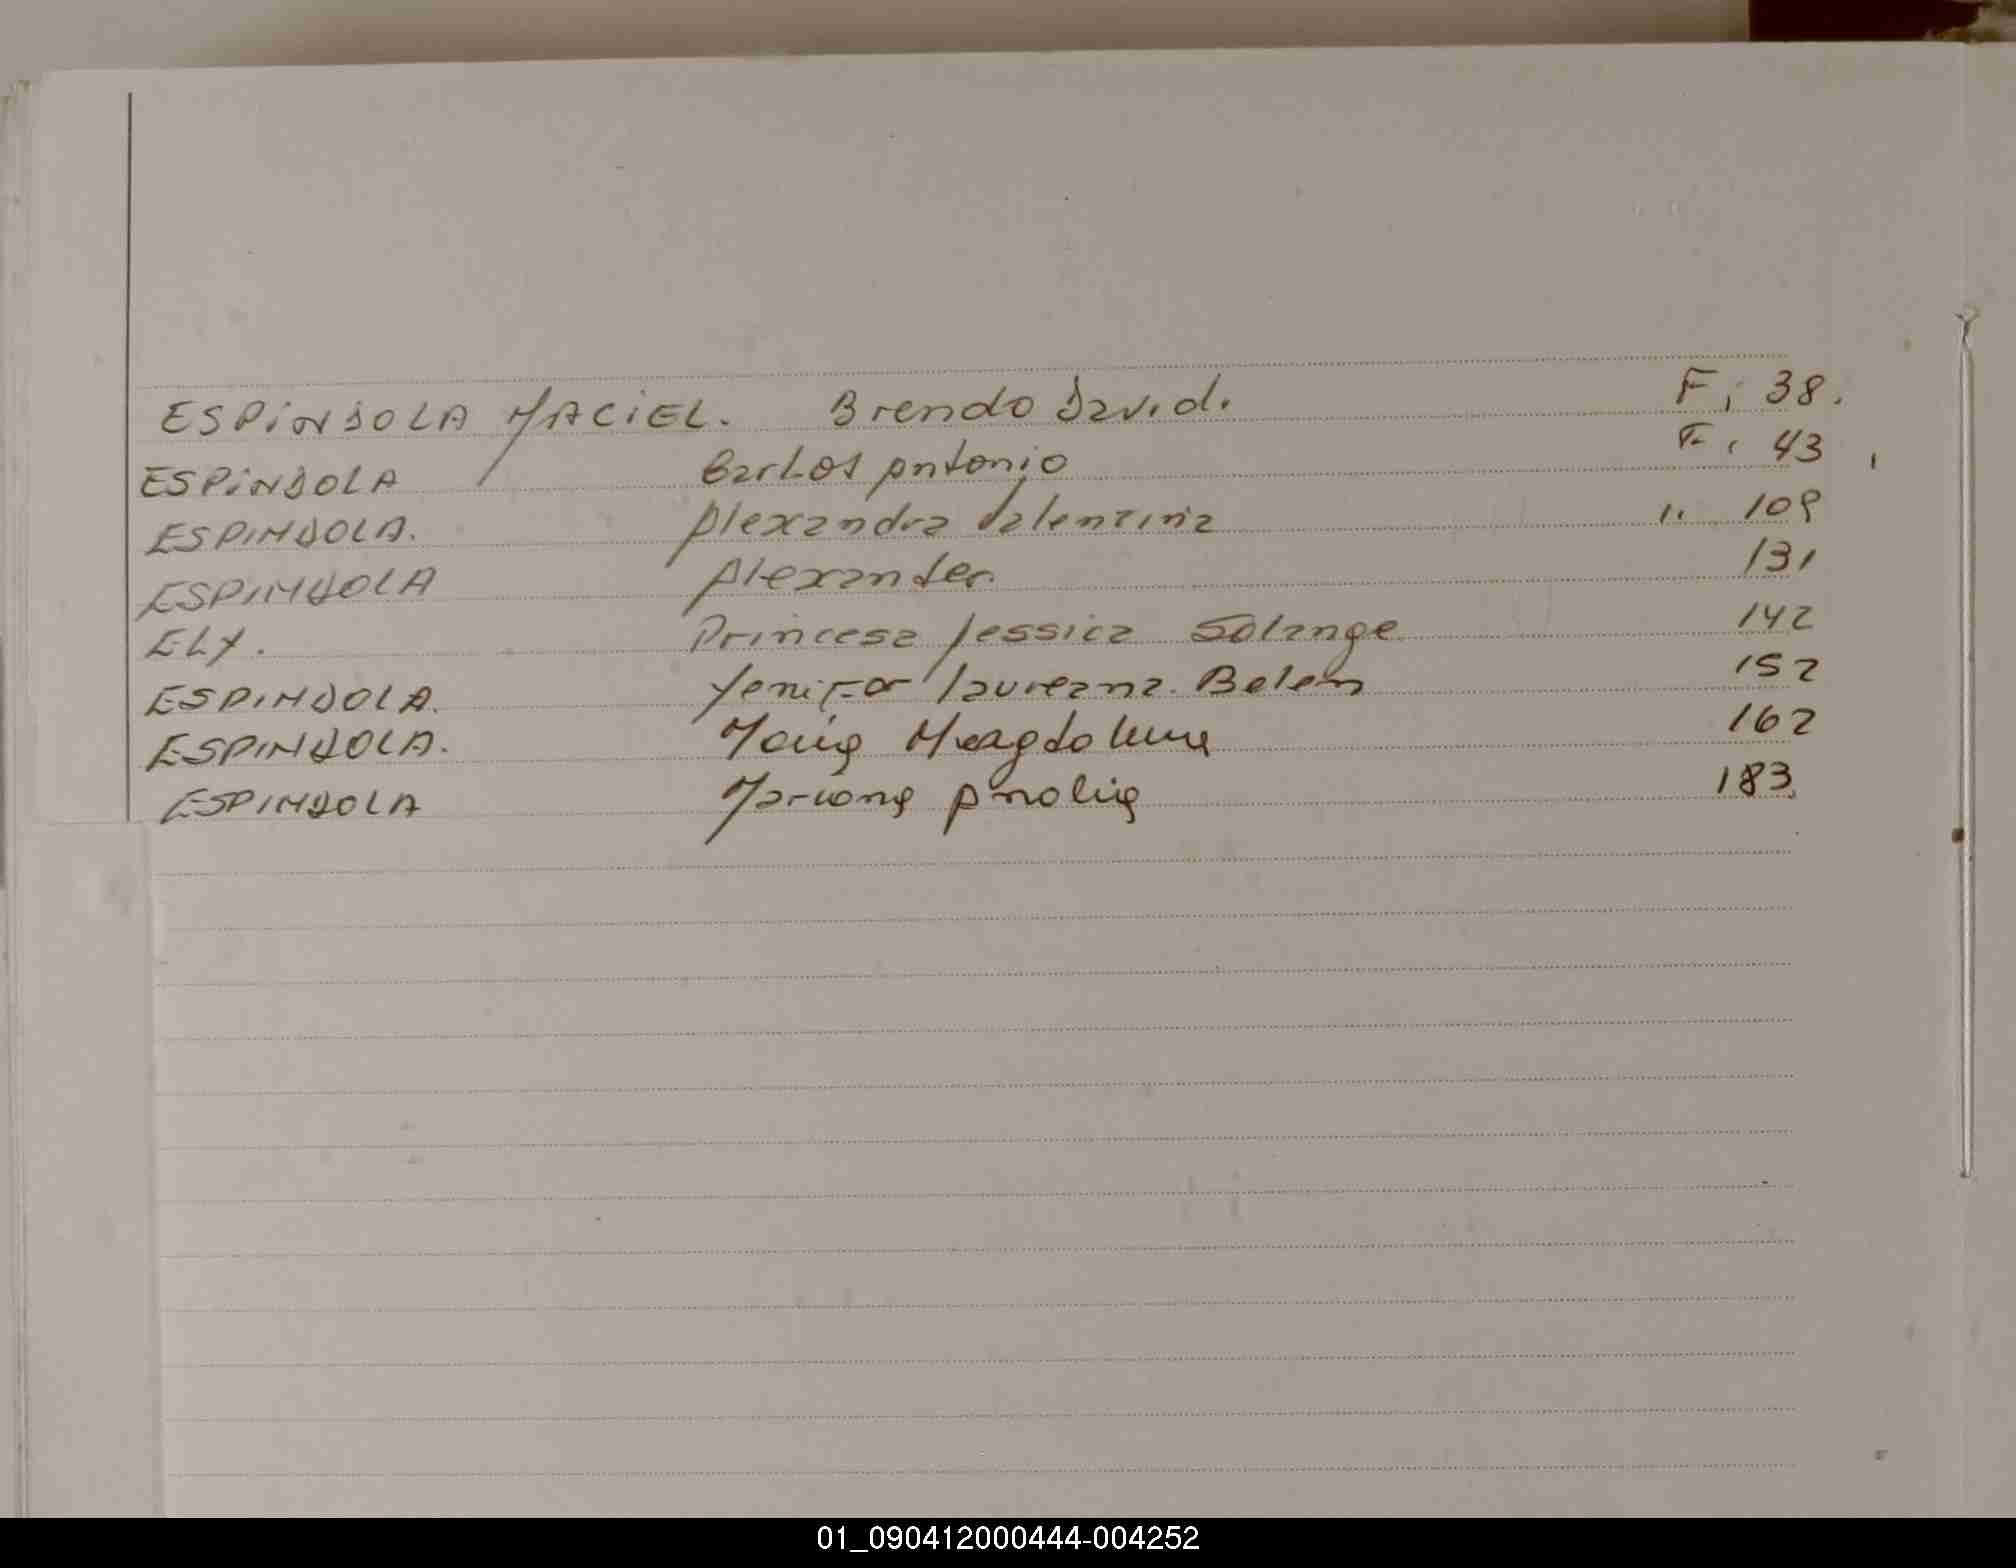 ESPINDOLA MACIEL. Brendo David. F. 38.
ESPINDOLA Carlos Antonio F. 43
ESPINDOLA. Alexandra Valentina " 109
ESPINDOLA Alexander. 131
ELY. Princesa Jessica Solange 142
ESPINDOLA. Yenifer Laureana. Belen 152
ESPINDOLA. Maria Magdalena 162
ESPINDOLA Mariana Analia 183
01_090412000444-004252